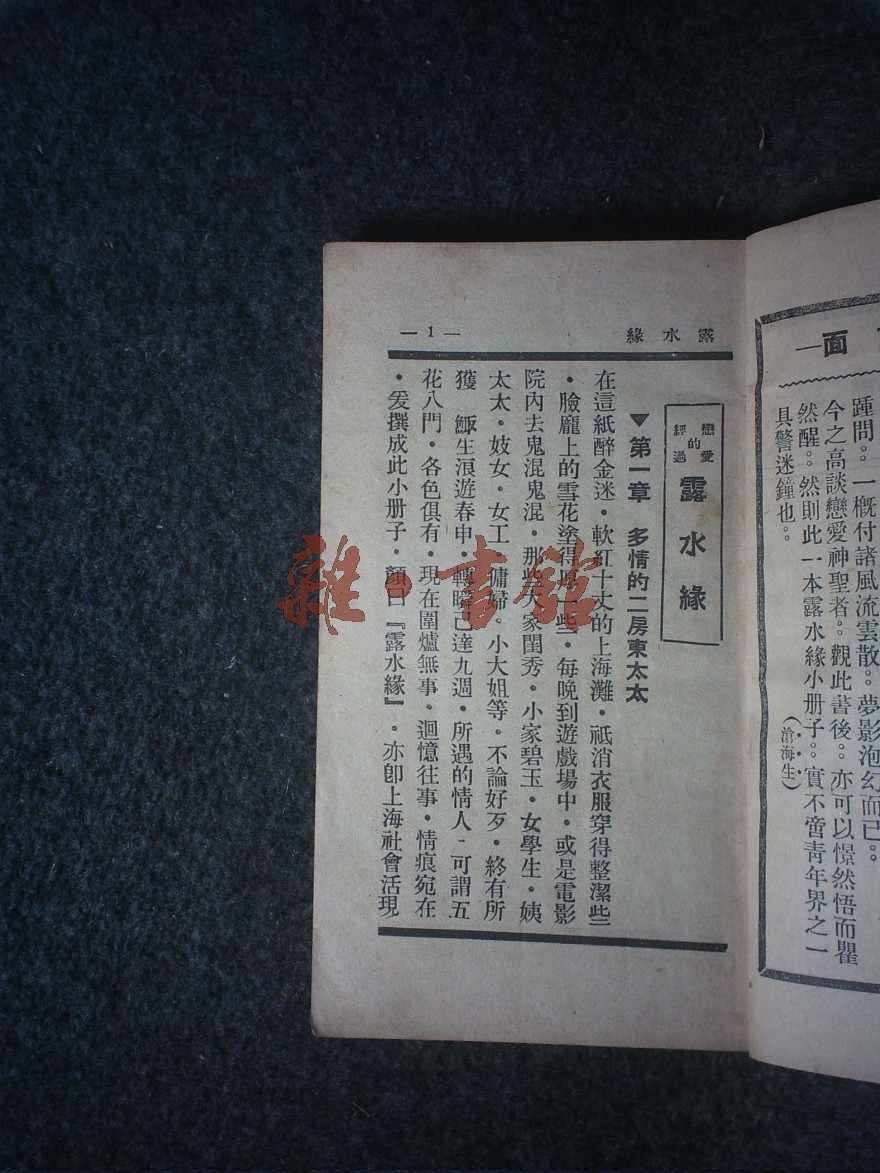 面一
踵問。。一概付諸風流雲散。。夢影泡幻而已。。
今之高談戀愛神聖者。。觀此書後。。亦可以憬然悟而瞿
然醒。。然則此一本露水緣小册子。。實不啻青年界之一
具警迷鐘也。。
(滄海生)
露水緣
—1—
戀愛的經過
露水緣
▼第一章 多情的二房東太太
在這紙醉金迷・軟紅十丈的上海灘・祗消衣服穿得整潔些
・臉龐上的雪花塗得厚一些・每晚到遊戲場中・或是電影
院內去鬼混鬼混・那些大家閨秀・小家碧玉・女學生・姨
太太・妓女・女工・傭婦・小大姐等・不論好歹・終有所
獲 鯫生浪遊春申・轉瞬已達九週・所遇的情人-可謂五
花八門・各色俱有・現在圍爐無事・迴憶往事・情痕宛在
・爰撰成此小册子・顏曰『露水緣』・亦卽上海社會活現
雜・書館